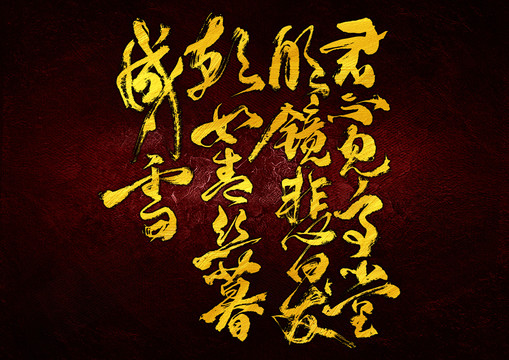 君不见高堂
明镜悲白发
朝如青丝暮
成雪